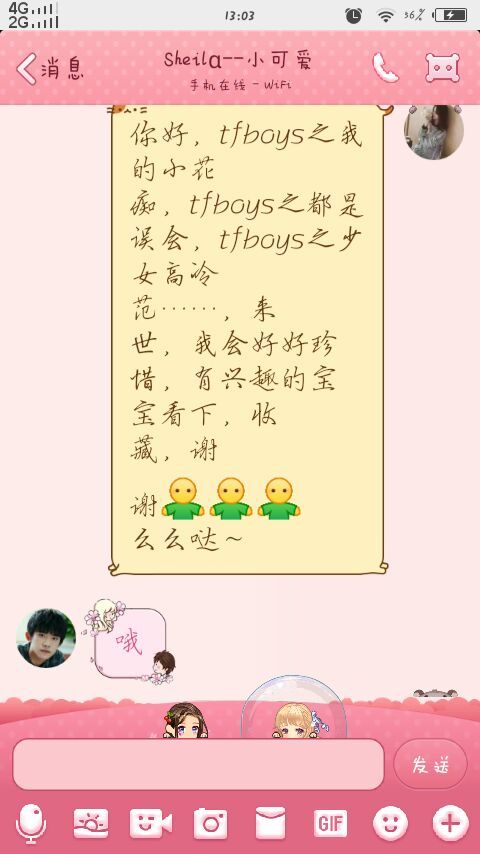 4G
2G
13:03
36%
消息
Sheilα--小可爱
手机在线 - WiFi
你好，tfboys之我
的小花
痴，tfboys之都是
误会，tfboys之少
女高冷
范……，来
世，我会好好珍
惜，有兴趣的宝
宝看下，收
藏，谢
谢
么么哒~
哦
发送
GIF